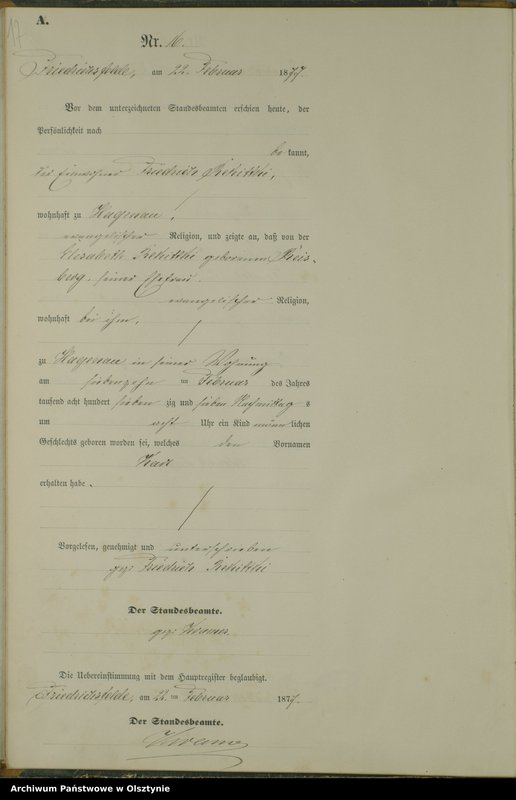 17
A.
Nr. 16.
Friedrichsfelde, am 22. Februar 1877.
Vor dem unterzeichneten Standesbeamten erschien heute, der
Persönlichkeit nach
be kannt,
der Einwohner Friedrich
wohnhaft zu Hagenau,
evangelischer Religion, und zeigte an, daß von der
Elisabeth geborenen Reis-
berg, seiner Ehefrau,
evangelischer Religion,
wohnhaft bei ihm,
zu Hagenau in seiner Wohnung
am siebenzehn ten Februar des Jahres
tausend acht hundert sieben zig und sieben Nachmittag s
um acht Uhr ein Kind männ lichen
Geschlechts geboren worden sei, welches den Vornamen
Karl
erhalten habe.
Vorgelesen, genehmigt und unterschrieben
gez. Friedrich
Der Standesbeamte.
gez.
Die Uebereinstimmung mit dem Hauptregister beglaubigt.
Friedrichsfelde, am 22 ten Februar 1877.
Der Standesbeamte.
Archiwum Państwowe w Olsztynie